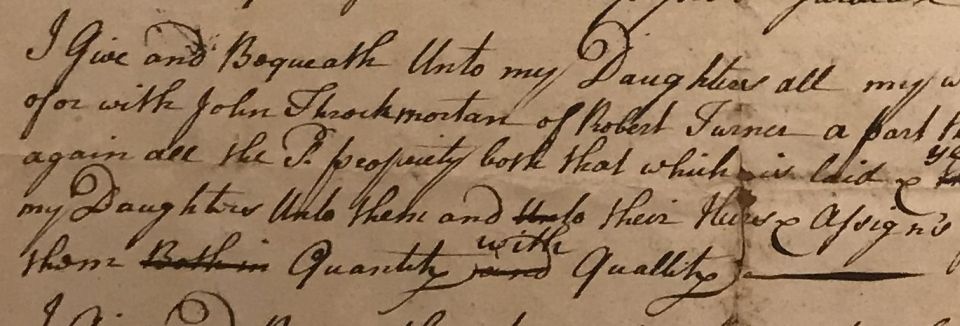 I Give and Bequeath Unto my Daughters all my
of or with John Throckmortan of Robert Turner a part
again all the Sd. propriety both that which is laid &
my Daughters Unto them and Unto their Heirs & Assign's
with
them Both in Quantity and Quallity
I Give